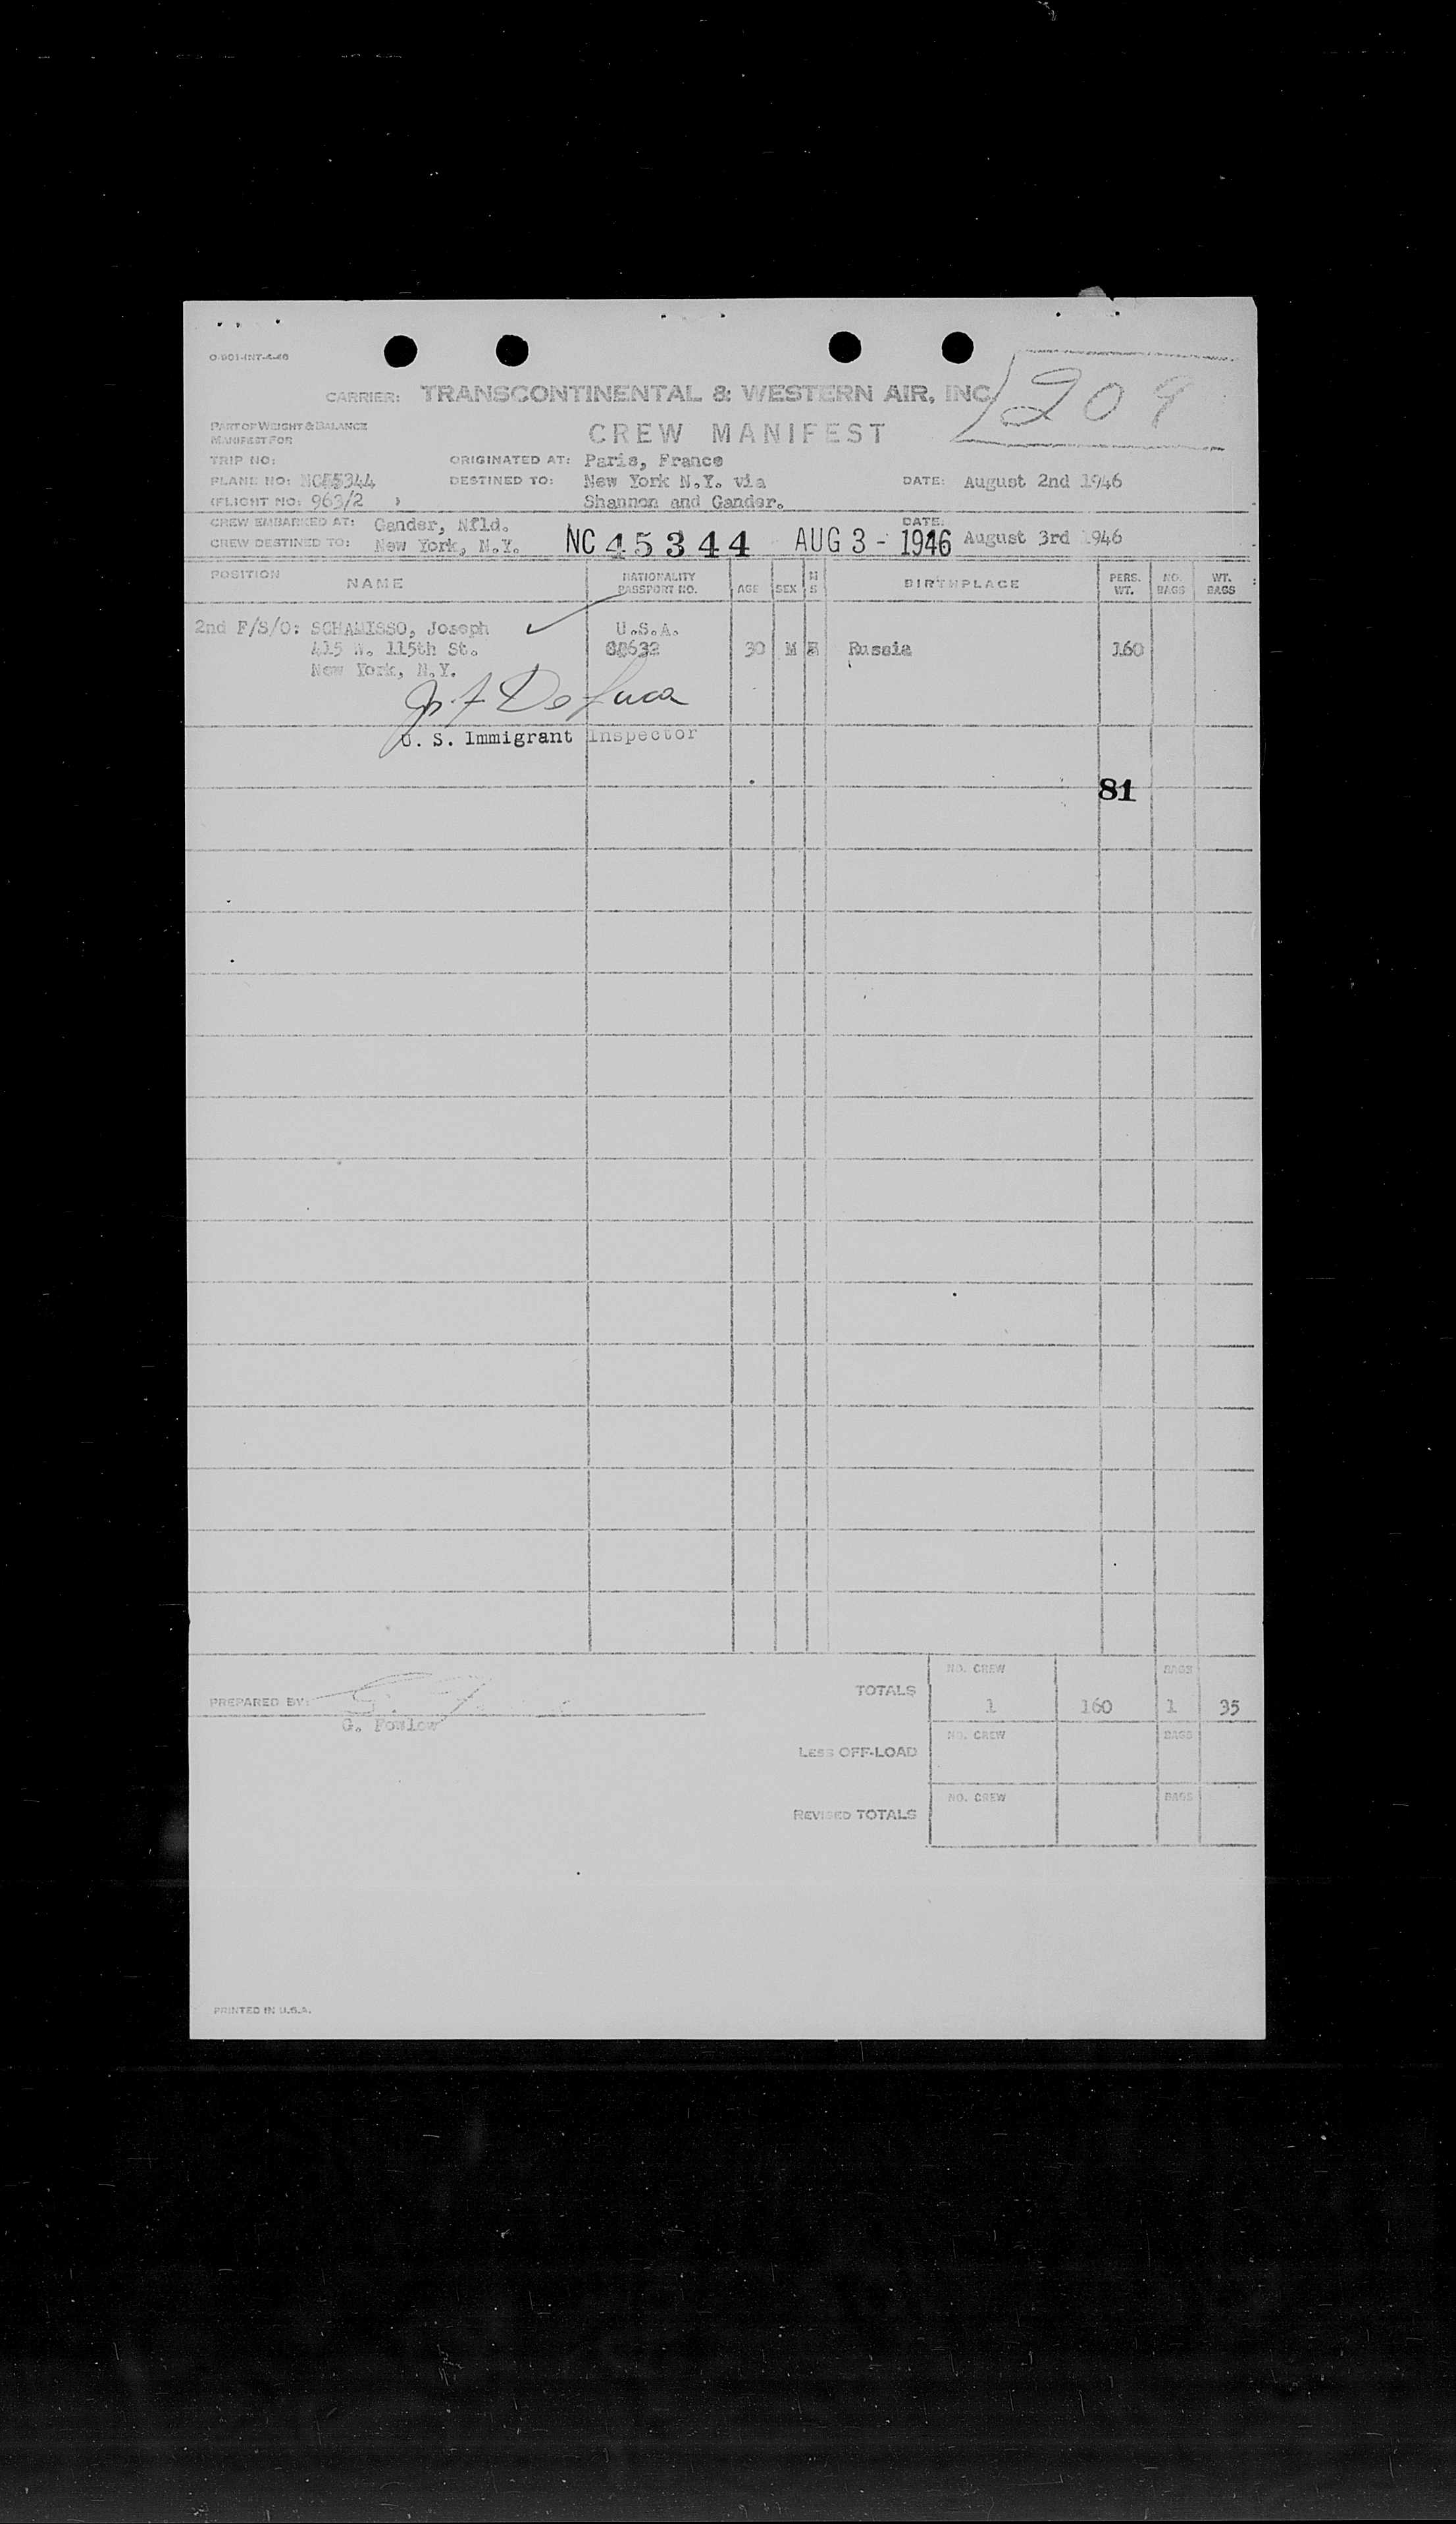 O-901-INT-4-46
CARRIER: TRANSCONTINENTAL & WESTERN AIR, INC.
209
PART OF WEIGHT & BALANCE
MANIFEST FOR
CREW MANIFEST
TRIP NO: ORIGINATED AT: Paris, France
PLANE NO: DESTINED TO: New York N.Y. via DATE: August 2nd 1946
(FLIGHT NO: 963/2 ) Shannon and Gander.
CREW EMBARKED AT: Gander, Nfld. DATE:
CREW DESTINED TO: New York, N.Y. NC 45344 AUG 3 - 1946 August 3rd 1946
POSITION NAME NATIONALITY PASSPORT NO. AGE SEX M S BIRTHPLACE PERS. WT. NO. BAGS WT. BAGS
2nd F/S/O: SCHAMISSO, Joseph U.S.A.
415 W. 115th St. 30 M Russia 160
New York, N.Y.
De Luca
U. S. Immigrant Inspector
81
NO. CREW BAGS
PREPARED BY: TOTALS 1 160 1 35
G. Fowlow
NO. CREW BAGS
LESS OFF-LOAD
NO. CREW BAGS
REVISED TOTALS
PRINTED IN U.S.A.